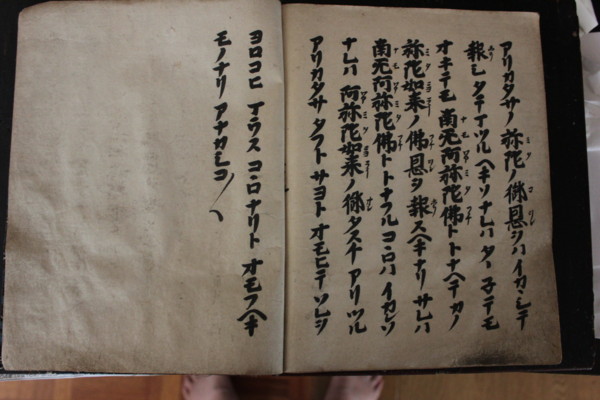 アリカタサノ 弥陀ノ御恩ヲハ イカヽシテ
報シタテマツルヘキソナレハ タヽ子テモ
オキテモ 南无阿弥陀佛トトナヘテ カノ
弥陀如来ノ佛恩ヲ報スヘキナリ サレハ
南无阿弥陀佛トトナフルコヽロハ イカンソ
ナレハ 阿弥陀如来ノ御タスケアリツル
アリカタサ タフトサヨト オモヒテ ソレヲ
ヨロコヒ マウス コヽロナリト オモフヘキ
モノナリ アナカシコ〳〵